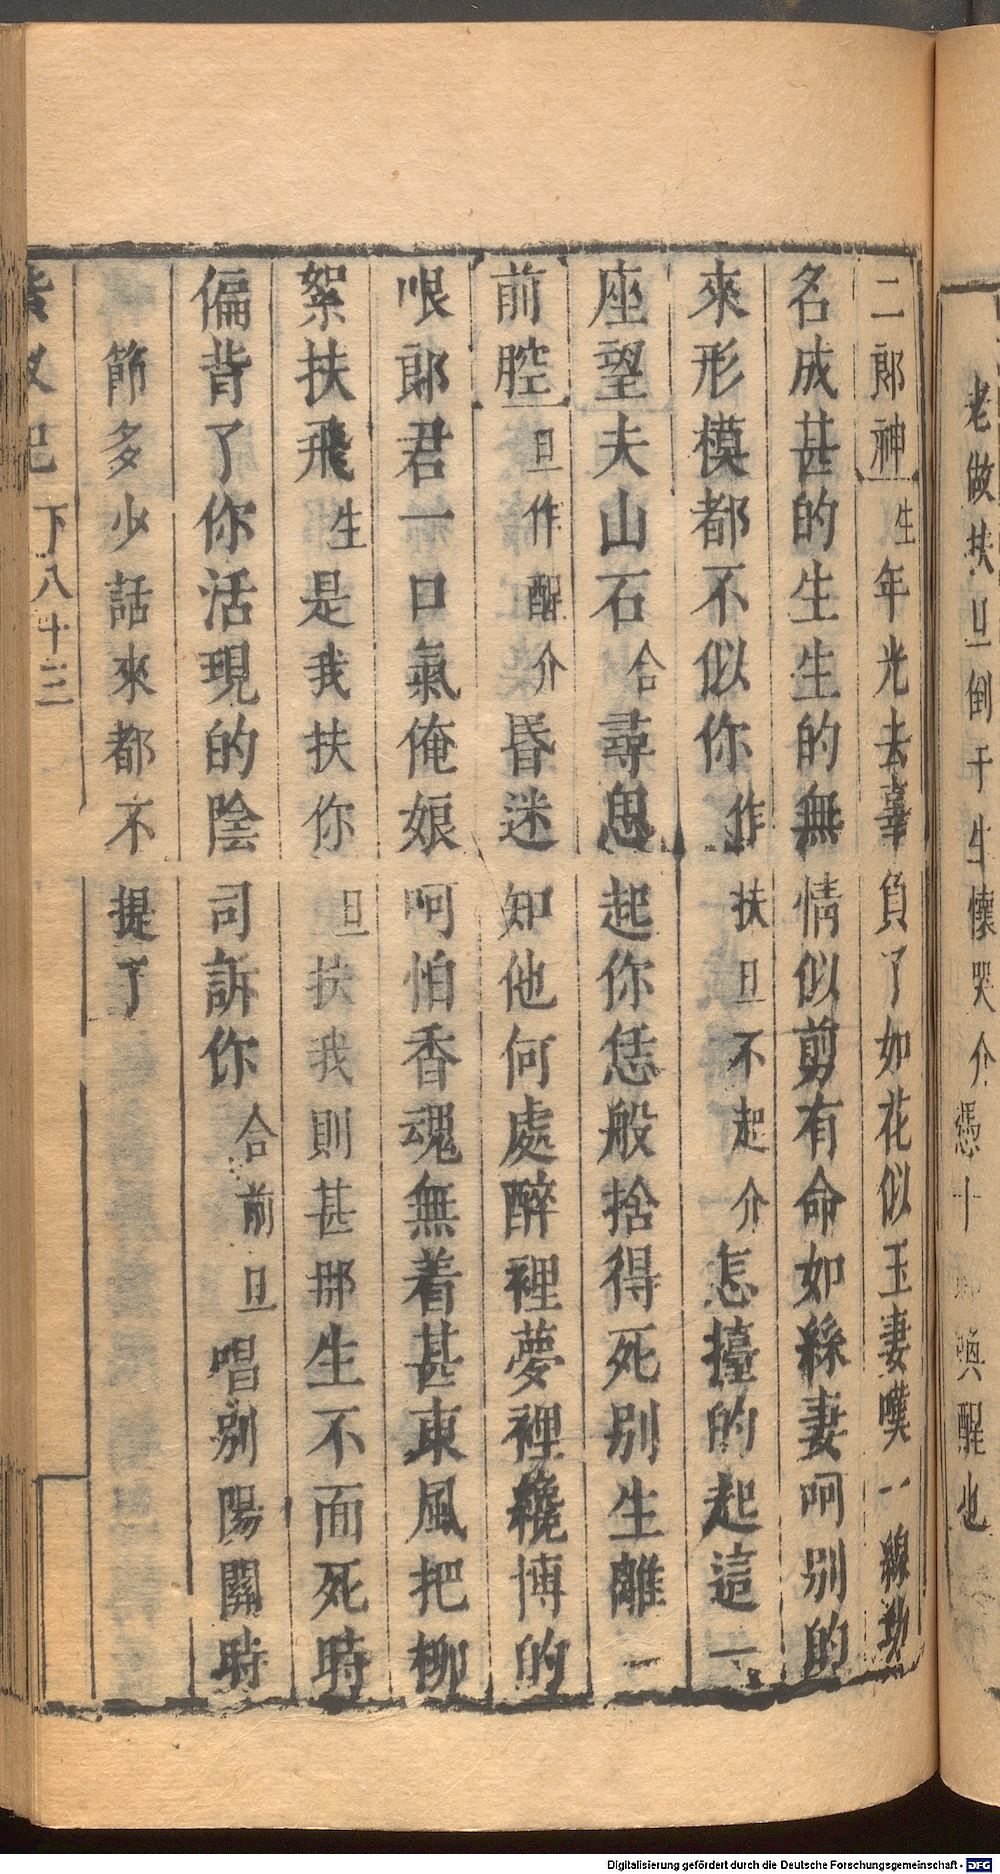 老做扶旦倒于生懷哭介憑十 喚醒也
二郎神生年光去辜負了如花似玉妻嘆一線功
名成甚的生生的無情似剪有命如絲妻呵别的
來形模都不似你作扶旦不起介怎擡的起這一
座望夫山石合尋思起你恁般捨得死别生離一
前腔旦作醒介昏迷知他何處醉裡夢裡纔博的
哏郎君一口氣俺娘呵怕香魂無着甚東風把柳
絮扶飛生是我扶你旦扶我則甚那生不面死時
偏背了你活現的陰司訴你合前旦唱别陽關時
節多少話來都不提了
紫釵記 下 八十三
Digitalisierung gefördert durch die Deutsche Forschungsgemeinschaft - DFG